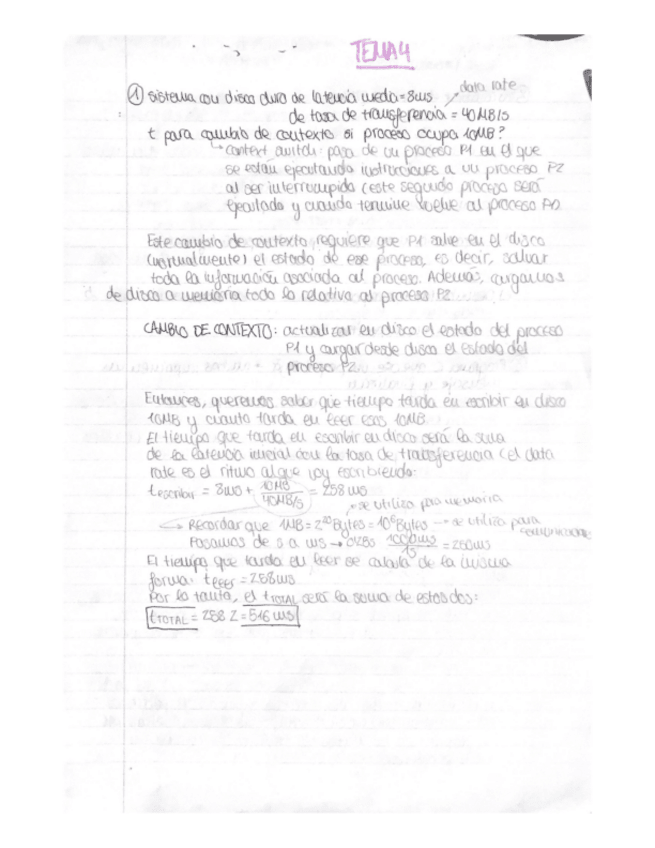 TEMA 4
① Sistema con disco duro de latencia media = 8ms
data rate
de tasa de transferencia = 40MB/s
t para cambio de contexto si proceso ocupa 10MB?
context switch: pasa de un proceso P1 en el que
se están ejecutando instrucciones a un proceso P2
al ser interrumpido (este segundo proceso será
ejecutado y cuando termine vuelve al proceso
Este cambio de contexto requiere que P1 salve en el disco
(normalmente) el estado de ese proceso, es decir, salvar
toda la información asociada al proceso. Además, cargamos
de disco a memoria todo lo relativo al proceso P2
CAMBIO DE CONTEXTO: actualizar en disco el estado del proceso
P1 y cargar desde disco el estado del
proceso P2
Entonces, queremos saber qué tiempo tarda en escribir en disco
10MB y cuanto tarda en leer esos 10MB
El tiempo que tarda en escribir en disco será la suma
de la latencia inicial con la tasa de transferencia (el data
rate es el ritmo al que voy escribiendo:
t escribir = 8ms + 10MB / 40MB/s = 258 ms
→ se utiliza para memoria
→ Recordar que 1MB = 2²⁰ Bytes = 10⁶ Bytes → se utiliza para
Pasamos de s a ms → 0,25s 1000ms / 1s = 250ms
El tiempo que tarda en leer se calcula de la misma
forma: t leer = 258ms
Por lo tanto, el t TOTAL será la suma de estos dos:
t TOTAL = 258·2 = 516 ms